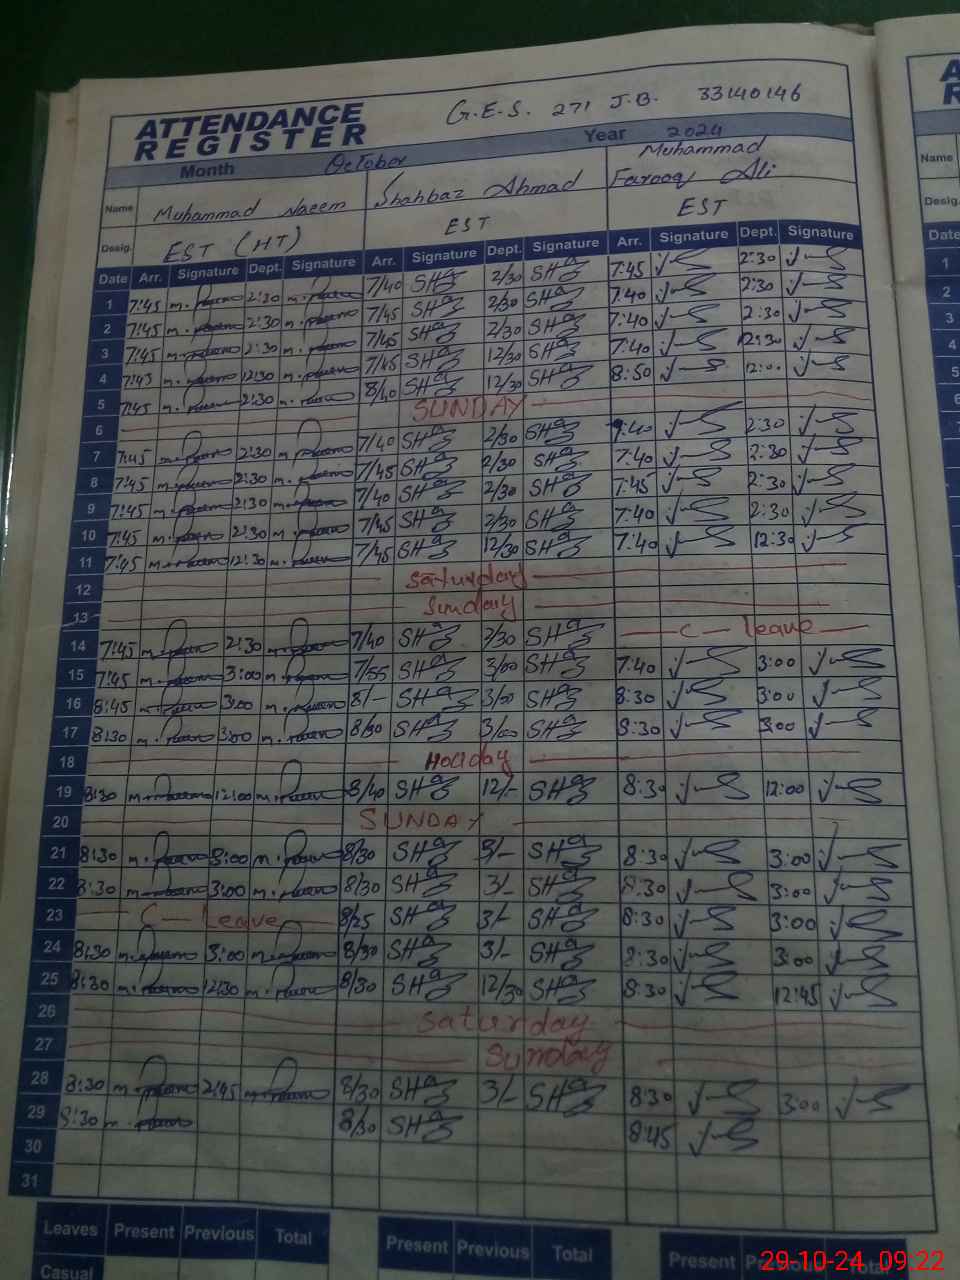 ATTENDANCE REGISTER
G.E.S. 271 J.B. 33140146
Month October Year 2024
Name Muhammad Naeem Shahbaz Ahmad Muhammad Farooq Ali
Desig. EST (HT) EST EST
Date Arr. Signature Dept. Signature Arr. Signature Dept. Signature Arr. Signature Dept. Signature
1 7:45 2:30 7/40 SH 2/30 SH 7:45 2:30
2 7:45 2:30 7/45 SH 2/30 SH 7:40 2:30
3 7:45 2:30 7/45 SH 2/30 SH 7:40 2:30
4 7:45 12:30 7/45 SH 12/30 SH 7:40 12:30
5 7:45 2:30 8/40 SH 12/30 SH 8:50 12:00
6 SUNDAY
7 7:45 2:30 7/40 SH 2/30 SH 7:40 2:30
8 7:45 2:30 7/45 SH 2/30 SH 7:40 2:30
9 7:45 2:30 7/40 SH 2/30 SH 7:45 2:30
10 7:45 2:30 7/45 SH 2/30 SH 7:40 2:30
11 7:45 12:30 7/45 SH 12/30 SH 7:40 12:30
12 Saturday
13 Sunday
14 7:45 2:30 7/40 SH 2/30 SH C - leave
15 7:45 3:00 7/55 SH 3/00 SH 7:40 3:00
16 8:45 3:00 8/- SH 3/00 SH 8:30 3:00
17 8:30 3:00 8/30 SH 3/00 SH 8:30 3:00
18 Holiday
19 8:30 12:00 8/40 SH 12/- SH 8:30 12:00
20 SUNDAY
21 8:30 3:00 8/30 SH 3/- SH 8:30 3:00
22 8:30 3:00 8/30 SH 3/- SH 8:30 3:00
23 C - Leave 8/25 SH 3/- SH 8:30 3:00
24 8:30 3:00 8/30 SH 3/- SH 8:30 3:00
25 8:30 12:30 8/30 SH 12/30 SH 8:30 12:45
26 Saturday
27 Sunday
28 8:30 2:45 8/30 SH 3/- SH 8:30 3:00
29 8:30 8/30 SH 8:45
30
31
Leaves Present Previous Total Present Previous Total Present Total
Casual
29-10-24 09:22
Name
Desig.
Date
1
2
3
4
5